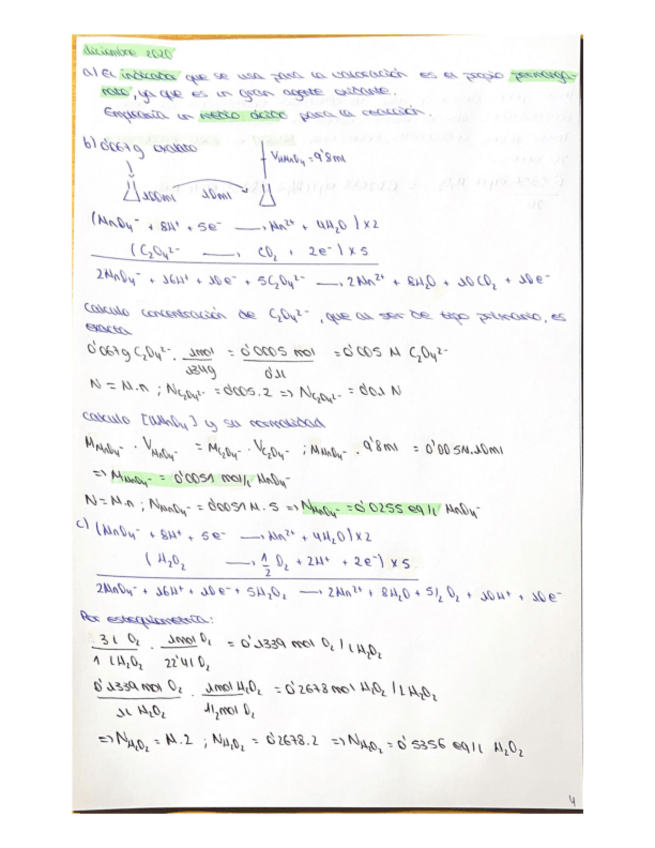 diciembre 2020
a) El indicador que se usa para la valoración es el propio permanga-
nato, ya que es un gran agente oxidante.
Emplearía un medio ácido para la reacción.
b) 0'067g oxalato
VMnO4- = 9'8ml
100ml 10ml
(MnO4- + 8H+ + 5e- → Mn2+ + 4H2O) x 2
(C2O4 2- → CO2 + 2e-) x 5
2MnO4- + 16H+ + 10e- + 5C2O4 2- → 2Mn2+ + 8H2O + 10CO2 + 10e-
Calculo concentración de C2O4 2-, que al ser de tipo primario, es
exacta
0'067g C2O4 2- · 1mol/134g = 0'0005 mol/0'1l = 0'005 M C2O4 2-
N = M.n ; NC2O4 2- = 0'005.2 => NC2O4 2- = 0'01 N
Calculo [MnO4-] y su normalidad
MMnO4- · VMnO4- = MC2O4 2- · VC2O4 2- ; MMnO4- · 9'8ml = 0'005M.10ml
=> MMnO4- = 0'0051 mol/l MnO4-
N = M.n ; NMnO4- = 0'0051M.5 => NMnO4- = 0'0255 eq/l MnO4-
c) (MnO4- + 8H+ + 5e- → Mn2+ + 4H2O) x 2
(H2O2 → 1/2 O2 + 2H+ + 2e-) x 5
2MnO4- + 16H+ + 10e- + 5H2O2 → 2Mn2+ + 8H2O + 5/2 O2 + 10H+ + 10e-
Por estequiometría:
3l O2/1 l H2O2 · 1mol O2/22'4l O2 = 0'1339 mol O2/l H2O2
0'1339 mol O2/1l H2O2 · 1mol H2O2/1/2 mol O2 = 0'2678 mol H2O2/1l H2O2
=> NH2O2 = M.2 ; NH2O2 = 0'2678.2 => NH2O2 = 0'5356 eq/l H2O2
4